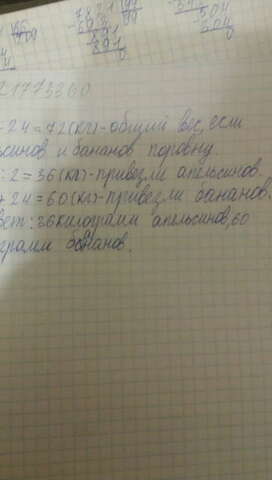 21773360
- 24 = 72(кг) - общий вес, если
ьсинов и бананов поровну.
: 2 = 36(кг) - привезли апельсинов.
+ 24 = 60(кг) - привезли бананов.
вет: 36 килограмм апельсинов, 60
грамм бананов.